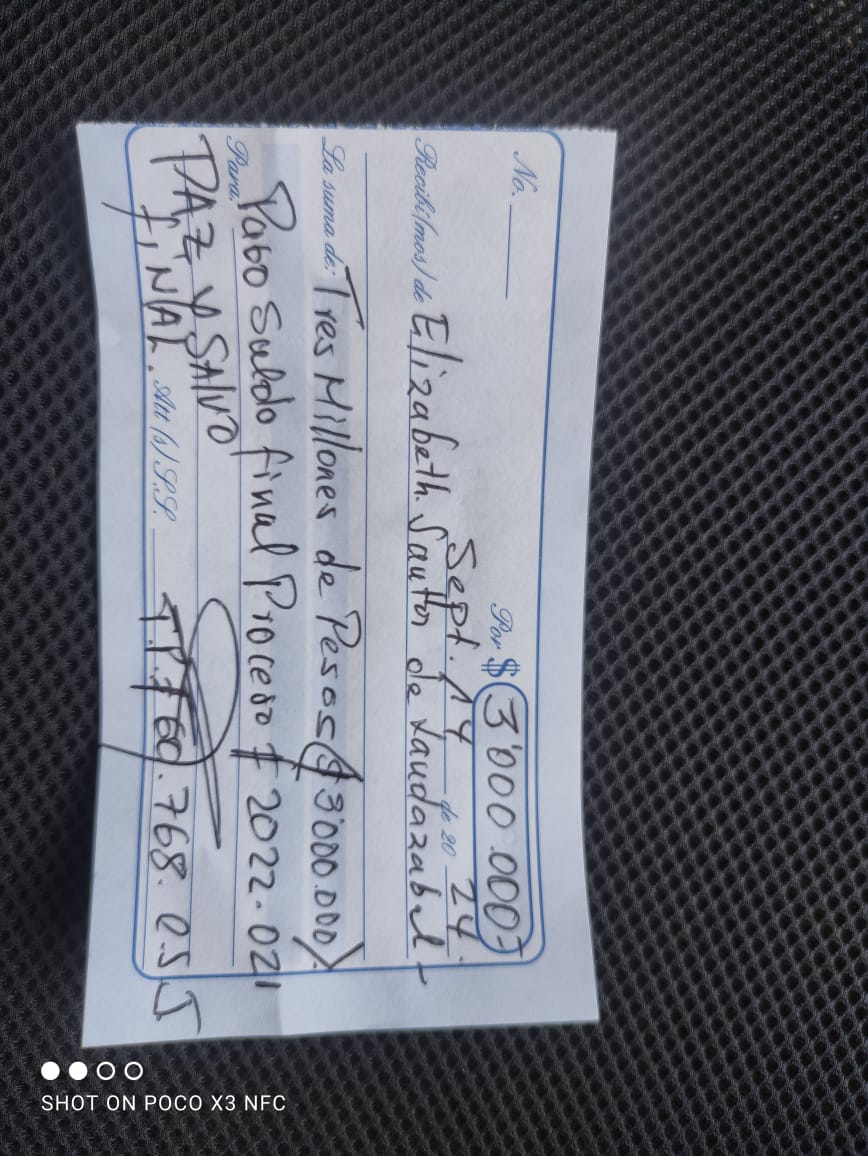 No. ____ Por $ 3'000.000=
Sept. 14 de 20 24.
Recibí(mos) de Elizabeth. Santos de Landazabal -
La suma de: Tres Millones de Pesos ($ 3'000.000).
Para: Pago Saldo final Proceso # 2022-021
PAZ Y SALVO
FINAL. Att (s) S.S. T.P. # 60.768. C.S.J
SHOT ON POCO X3 NFC